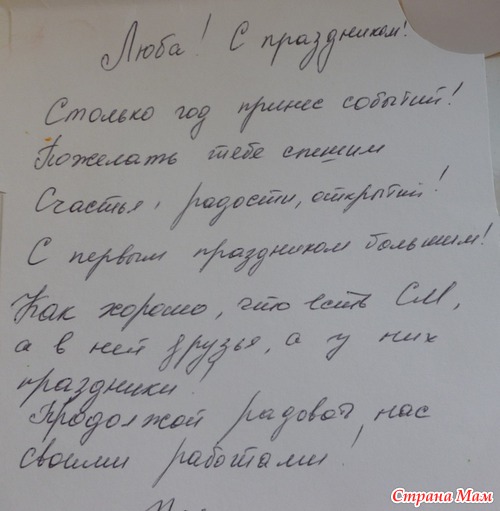 Люба! С праздником!
Столько год принес событий!
Пожелать тебе спешим
Счастья, радости, открытий!
С первым праздником большим!
Как хорошо, что есть СМ,
а в ней друзья, а у них
праздники!
Продолжай радовать нас
своими работами!
Страна Мам